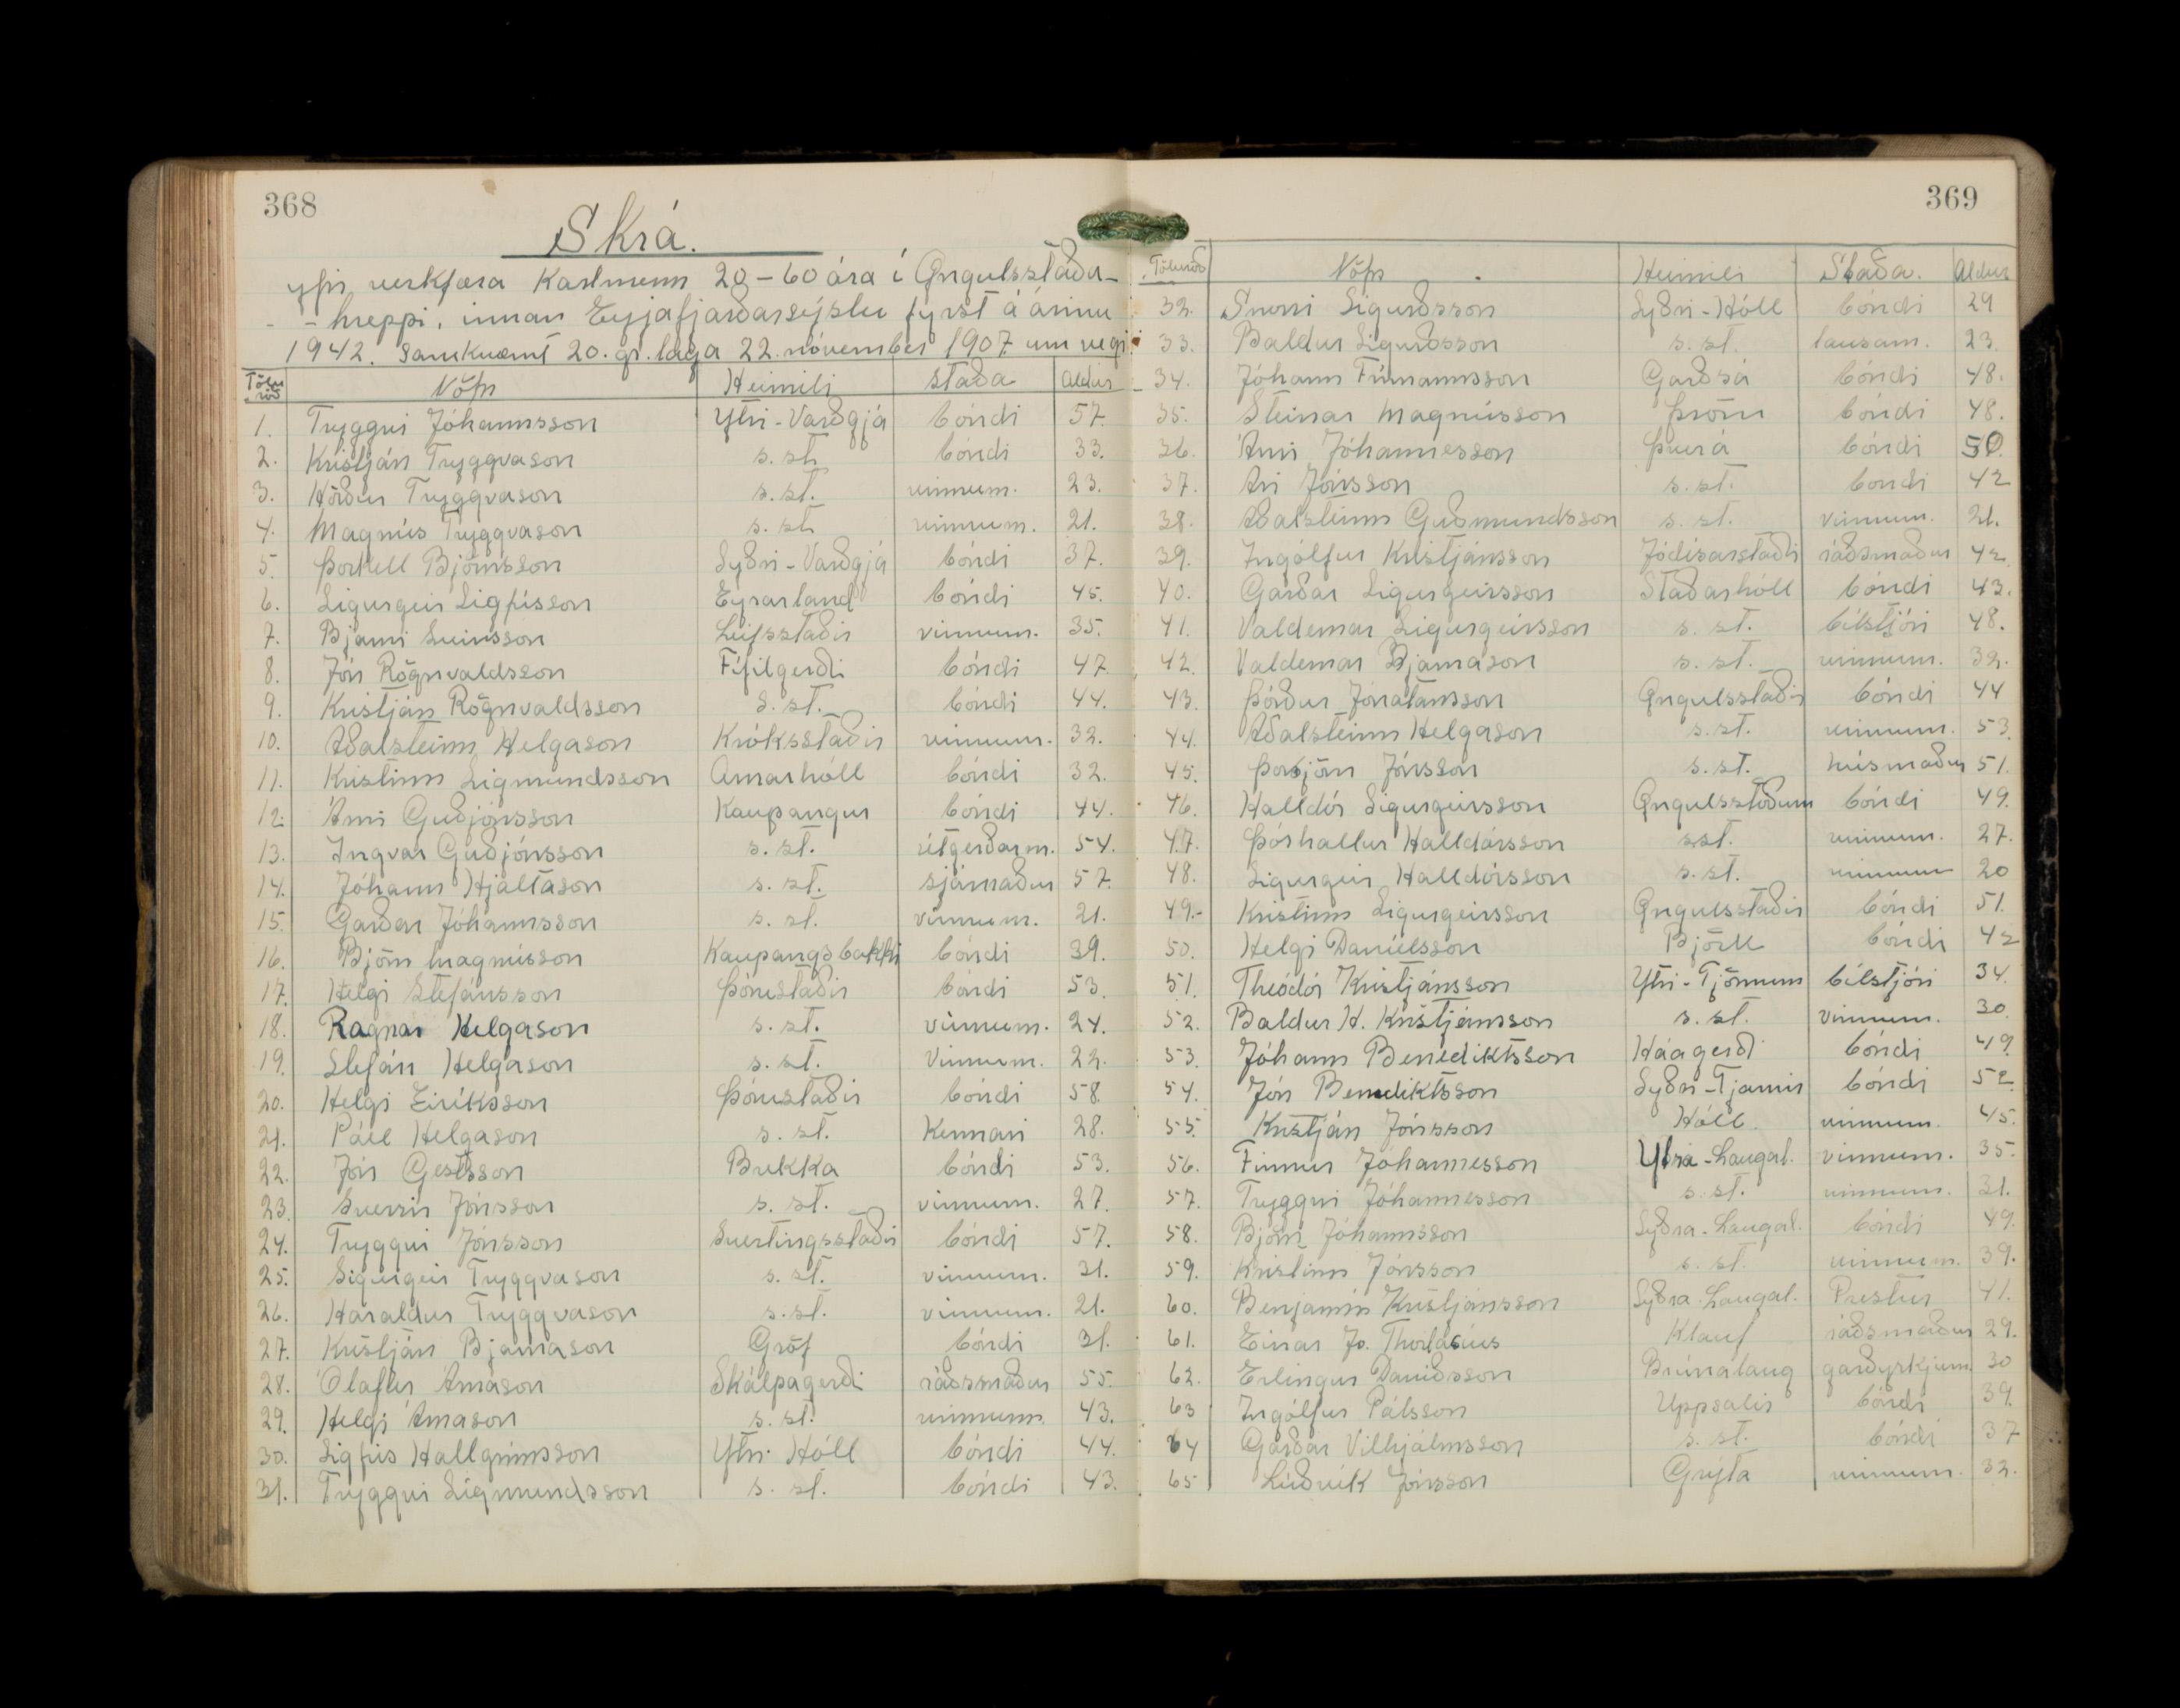 368
Skrá.
yfir verkfæra Karlmenn 20-60 ára í Öngulsstaða-
- hreppi, innan Eyjafjarðarsýslu fyrst á árinu
1942. samkvæmt 20. gr. laga 22. nóvember 1907 um vegi.
Tölu röð Nöfn Heimili staða aldur
1. Tryggvi Jóhannsson Ytri-Varðgjá bóndi 57.
2. Kristján Tryggvason s. st. bóndi 33.
3. Hörður Tryggvason s. st. vinnum. 23.
4. Magnús Tryggvason s. st. vinnum. 21.
5. Þorkell Björnsson Syðri-Varðgjá bóndi 37.
6. Sigurgeir Sigfússon Eyrarland bóndi 45.
7. Bjarni Sveinsson Leifsstaðir vinnum. 35.
8. Jón Rögnvaldsson Fífilgerði bóndi 47.
9. Kristján Rögnvaldsson s. st. bóndi 44.
10. Aðalsteinn Helgason Króksstaðir vinnum. 32.
11. Kristinn Sigmundsson Arnarhóll bóndi 32.
12. Árni Guðjónsson Kaupangur bóndi 44.
13. Ingvar Guðjónsson s. st. útgerðarm. 54.
14. Jóhann Hjaltason s. st. sjómaður 57.
15. Garðar Jóhannsson s. st. vinnum. 21.
16. Björn Magnússon Kaupangsbakki bóndi 39.
17. Helgi Stefánsson Þórustaðir bóndi 53.
18. Ragnar Helgason s. st. vinnum. 24.
19. Stefán Helgason s. st. vinnum. 22.
20. Helgi Eiríksson Þórustaðir bóndi 58.
21. Páll Helgason s. st. Kennari 28.
22. Jón Gestsson Brekka bóndi 53.
23. Sverrir Jónsson s. st. vinnum. 27.
24. Tryggvi Jónsson Svertingsstaðir bóndi 57.
25. Sigurgeir Tryggvason s. st. vinnum. 31.
26. Haraldur Tryggvason s. st. vinnum. 21.
27. Kristján Bjarnason Gröf bóndi 31.
28. Ólafur Árnason Skálpagerði ráðsmaður 55.
29. Helgi Árnason s. st. vinnum. 43.
30. Sigfús Hallgrímsson Ytri-Hóll bóndi 44.
31. Tryggvi Sigmundsson s. st. bóndi 43.
369
Töluröð Nöfn Heimili Staða. Aldur
32. Snorri Sigurðsson Syðri-Hóll bóndi 29
33. Baldur Sigurðsson s. st. lausam. 23.
34. Jóhann Frímannsson Garðsá bóndi 48.
35. Steinar Magnússon Þröm bóndi 48.
36. Árni Jóhannesson Þverá bóndi 50.
37. Ari Jónsson s. st. bóndi 42
38. Aðalsteinn Guðmundsson s. st. vinnum. 21.
39. Ingólfur Kristjánsson Jódísarstaðir ráðsmaður 42
40. Garðar Sigurgeirsson Staðarhóll bóndi 43.
41. Valdemar Sigurgeirsson s. st. bílstjóri 48.
42. Valdemar Bjarnason s. st. vinnum. 32.
43. Þórður Jónatansson Öngulsstaðir bóndi 44
44. Aðalsteinn Helgason s. st. vinnum. 53.
45. Þorbjörn Jónsson s. st. húsmaður 51.
46. Halldór Sigurgeirsson Öngulsstöðum bóndi 49.
47. Þórhallur Halldórsson s.st. vinnum. 27.
48. Sigurgeir Halldórsson s. st. vinnum 20
49.- Kristinn Sigurgeirsson Öngulsstaðir bóndi 51.
50. Helgi Daníelsson Björk bóndi 42
51. Theódór Kristjánsson Ytri-Tjörnum bílstjóri 34.
52. Baldur H. Kristjánsson s. st. vinnum. 30.
53. Jóhann Benediktsson Háagerði bóndi 49.
54. Jón Benediktsson Syðri-Tjarnir bóndi 52.
55. Kristján Jónsson Hóll vinnum. 45.
56. Finnur Jóhannesson Ytra-Laugal. vinnum. 35.
57. Tryggvi Jóhannesson s. st. vinnum. 31.
58. Björn Jóhannsson Syðra-Laugal. bóndi 49.
59. Kristinn Jónsson s. st. vinnum. 39.
60. Benjamín Kristjánsson Syðra-Laugal. Prestur 41.
61. Einar Jo. Thorlacius Klauf ráðsmaður 29.
62. Erlingur Davíðsson Brúnalaug garðyrkjum. 30
63 Ingólfur Pálsson Uppsalir bóndi 39.
64 Garðar Vilhjálmsson s. st. bóndi 37
65 Lúðvík Jónsson Grýta vinnum. 32.